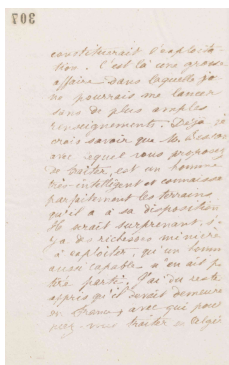 307
constituerait l'exploita-
tion. C'est là une grosse
affaire dans laquelle je
ne pourrais me lancer
sans de plus amples
renseignements. Déjà je
crois savoir que Mr.
avec lequel vous proposez
de traiter, est un homme
très intelligent et connaissant
parfaitement les terrains
qu'il a à sa disposition
Il serait surprenant, s'il
y a des richesses minières
à exploiter, qu'un homme
aussi capable n'en ait pas
tiré parti. J'ai du reste
appris qu'il devait demeurer
en France, avec qui pour
rez-vous traiter en